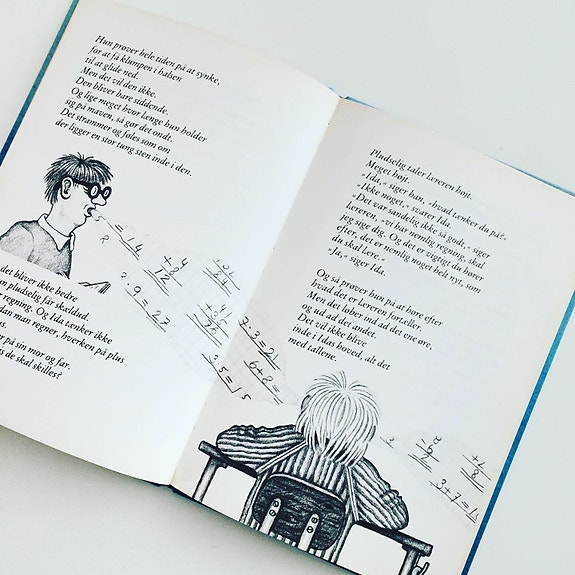 Hun prøver hele tiden på at synke,
for at få klumpen i halsen
til at glide ned.
Men det vil den ikke.
Den bliver bare siddende.
Og lige meget hvor længe hun holder
sig på maven, så gør det ondt.
Det strammer og føles som om
der ligger en stor tung sten inde i den.
det bliver ikke bedre
n pludselig får skældud.
r regning. Og Ida tænker ikke
dan man regner, hverken på plus
us.
r på sin mor og far.
s de skal skilles?
= 14
+8
12
3·9=27
7·3=21
6+2=
3·5=15
Pludselig taler læreren højt.
Meget højt.
»Ida,« siger han, »hvad tænker du på?«
»Ikke noget,« svarer Ida.
»Det var sandelig ikke så godt,« siger
læreren, »vi har nemlig regning, skal
jeg sige dig. Og det er vigtigt du hører
efter, det er nemlig noget helt nyt, som
du skal lære.«
Ja,« siger Ida.
Og så prøver hun på at høre efter
hvad det er læreren fortæller.
Men det løber ind ad det ene øre,
og ud ad det andet.
Det vil ikke blive
inde i Idas hoved, alt det
med tallene.
3+7=1